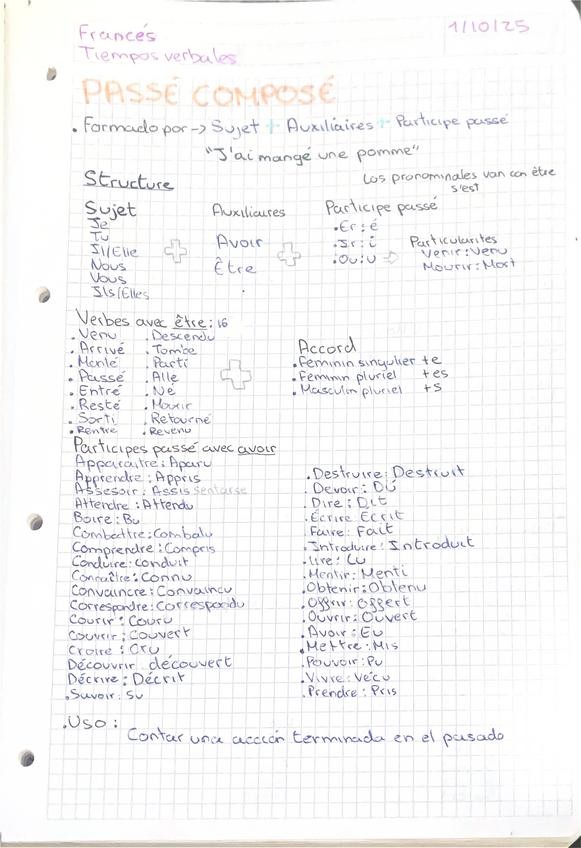 Francés
1/10/25
Tiempos verbales
PASSÉ COMPOSÉ
. Formado por -> Sujet + Auxiliaires + Participe passé
"J'ai mangé une pomme"
Los pronominales van con être
s'est
Structure
Sujet
Je
Tu
Il/Elle
Nous
Vous
Ils/Elles
+
Auxiliaires
Avoir
Être
+
Participe passé
.Er : é
.Ir : i
.Ou : u =>
Particularites
Venir : Venu
Mourir : Mort
Verbes avec être : 16
. Venu
. Arrivé
. Monté
. Passé
. Entré
. Resté
. Sorti
. Rentre
. Descendu
. Tombe
. Parti
. Alle
. Né
. Mourir
. Retourné
. Revenu
+
Accord
. Feminin singulier +e
. Feminin pluriel +es
. Masculin pluriel +s
Participes passé avec avoir
Apparaitre : Aparu
Apprendre : Appris
Assesoir : Assis sentarse
Attendre : Attendu
Boire : Bu
Combattre : Combatu
Comprendre : Compris
Conduire : conduit
Connaître : Connu
Convaincre : Convaincu
Correspondre : Correspondu
Courir : Couru
Couvrir : Couvert
Croire : Cru
Découvrir : découvert
Décrire : Décrit
. Savoir : Su
. Destruire : Destruit
. Devoir : Dû
. Dire : Dit
. Écrire Ecrit
. Faire : Fait
. Introduire : Introduit
. Lire : Lu
. Mentir : Menti
. Obtenir : Obtenu
. Offrir : Offert
. Ouvrir : Ouvert
. Avoir : Eu
. Mettre : Mis
. Pouvoir : Pu
. Vivre : Vécu
. Prendre : Pris
. Uso :
Contar una acción terminada en el pasado